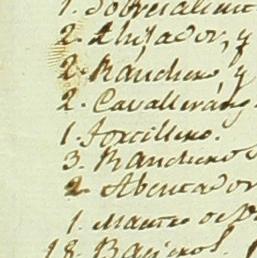 1. Sobresalient
2. Ahijador, y
2. Ranchero, y
2. Cavalleráng
1. Torillero.
3. Rancheros
2. Abentador
1. Maestro de
18. Bajeros.